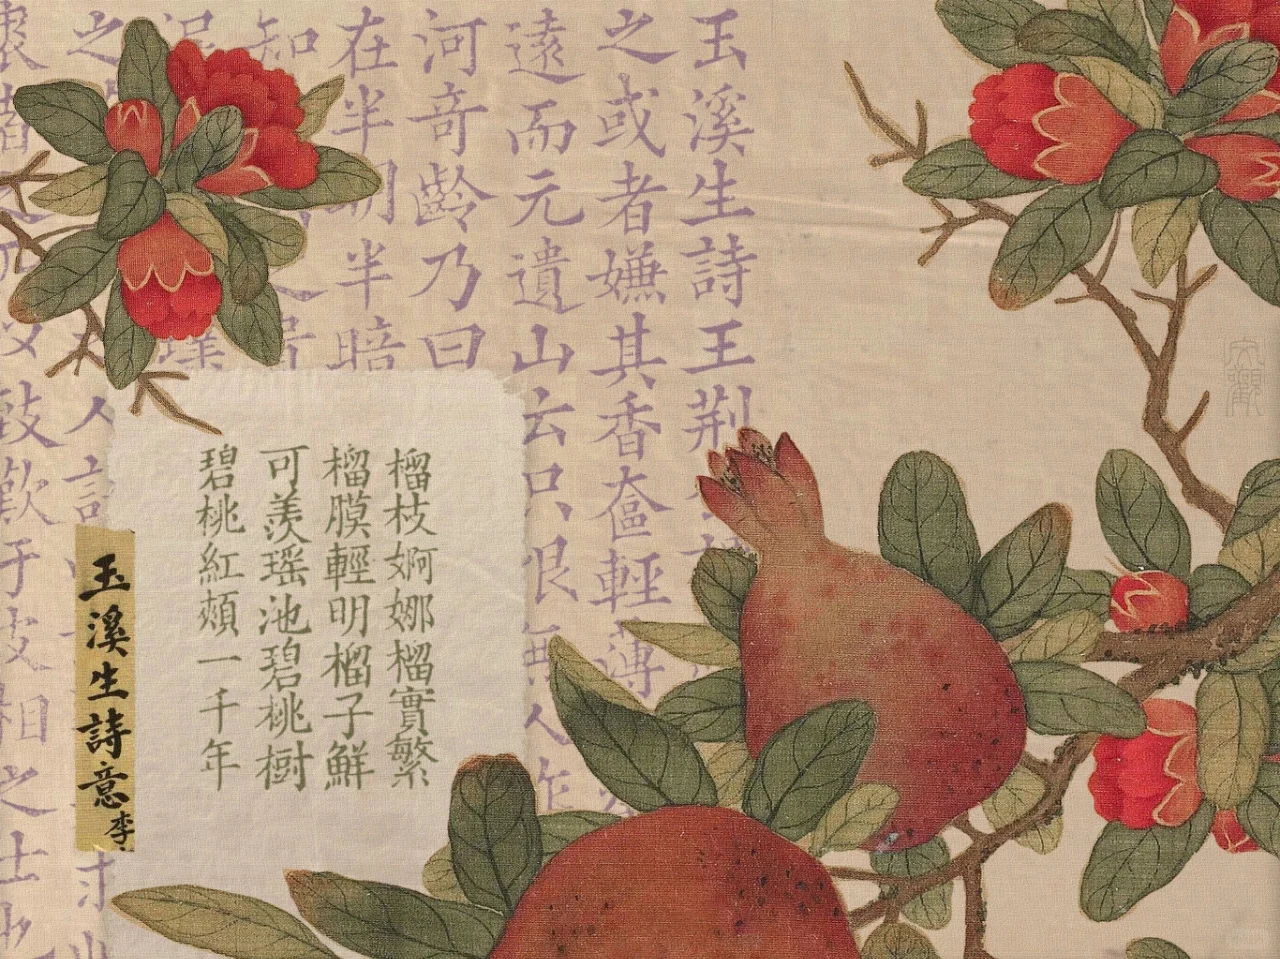 玉溪生詩王荆
之或者嫌其香奩輕薄
遠而元遺山云只恨無人作
河奇齡乃曰
在半明半暗
知
之
人
鼓歎予
相之士
榴枝婀娜榴實繁
榴膜輕明榴子鮮
可羨瑤池碧桃樹
碧桃紅頰一千年
玉溪生詩意 李
大觀